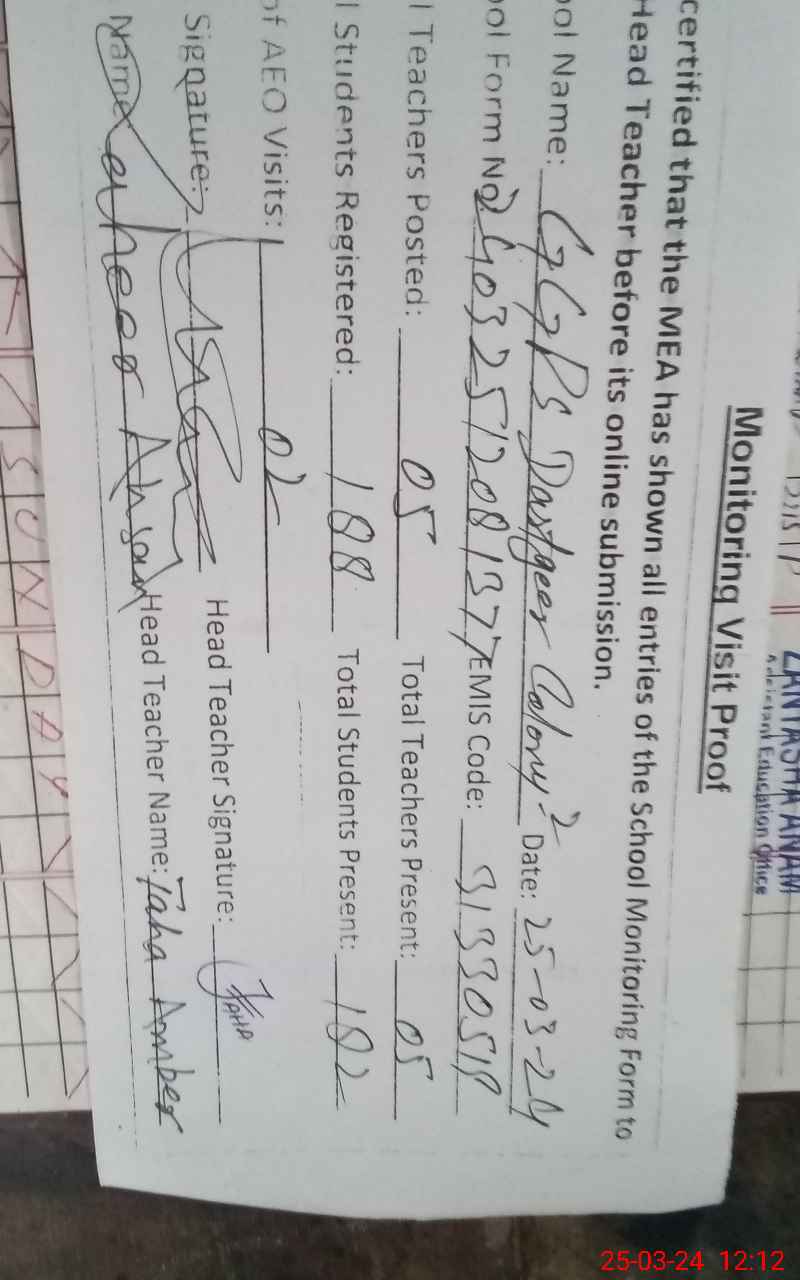 ZANTASHA ANAM
Assistant Education Office
Monitoring Visit Proof
certified that the MEA has shown all entries of the School Monitoring Form to
Head Teacher before its online submission.
ool Name: GGPS Dastgeer Colony-2 Date: 25-03-24
ool Form No 24032512081377 EMIS Code: 31330518
l Teachers Posted: 05 Total Teachers Present: 05
l Students Registered: 188 Total Students Present: 182
of AEO Visits: 02
Signature: Head Teacher Signature: TAHA
Name Ahsan Head Teacher Name: Taha Amber
SUNDAY
25-03-24 12:12